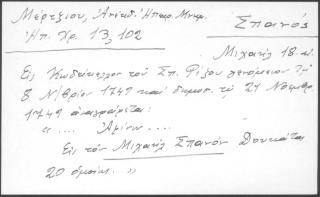 Μέρτζιου, Ἀνέκδ. Ἠπειρ. Μνημ.
Σπανός
Ἠπ. Χρ. 13, 102
Μιχαήλ 18 αἰ.
Εἰς Κωδίκελλον τοῦ Σπ. Ρίζου γενόμενον τῇ
8 Ν/βρίου 1747 καί δημοσ. τῇ 21 Νοεμβρ.
1749 ἀναγράφεται:
"... Ἀφίνω ....
Εἰς τόν Μιχαήλ Σπανόν Δουκάτα
20 ὁμοίως ..."